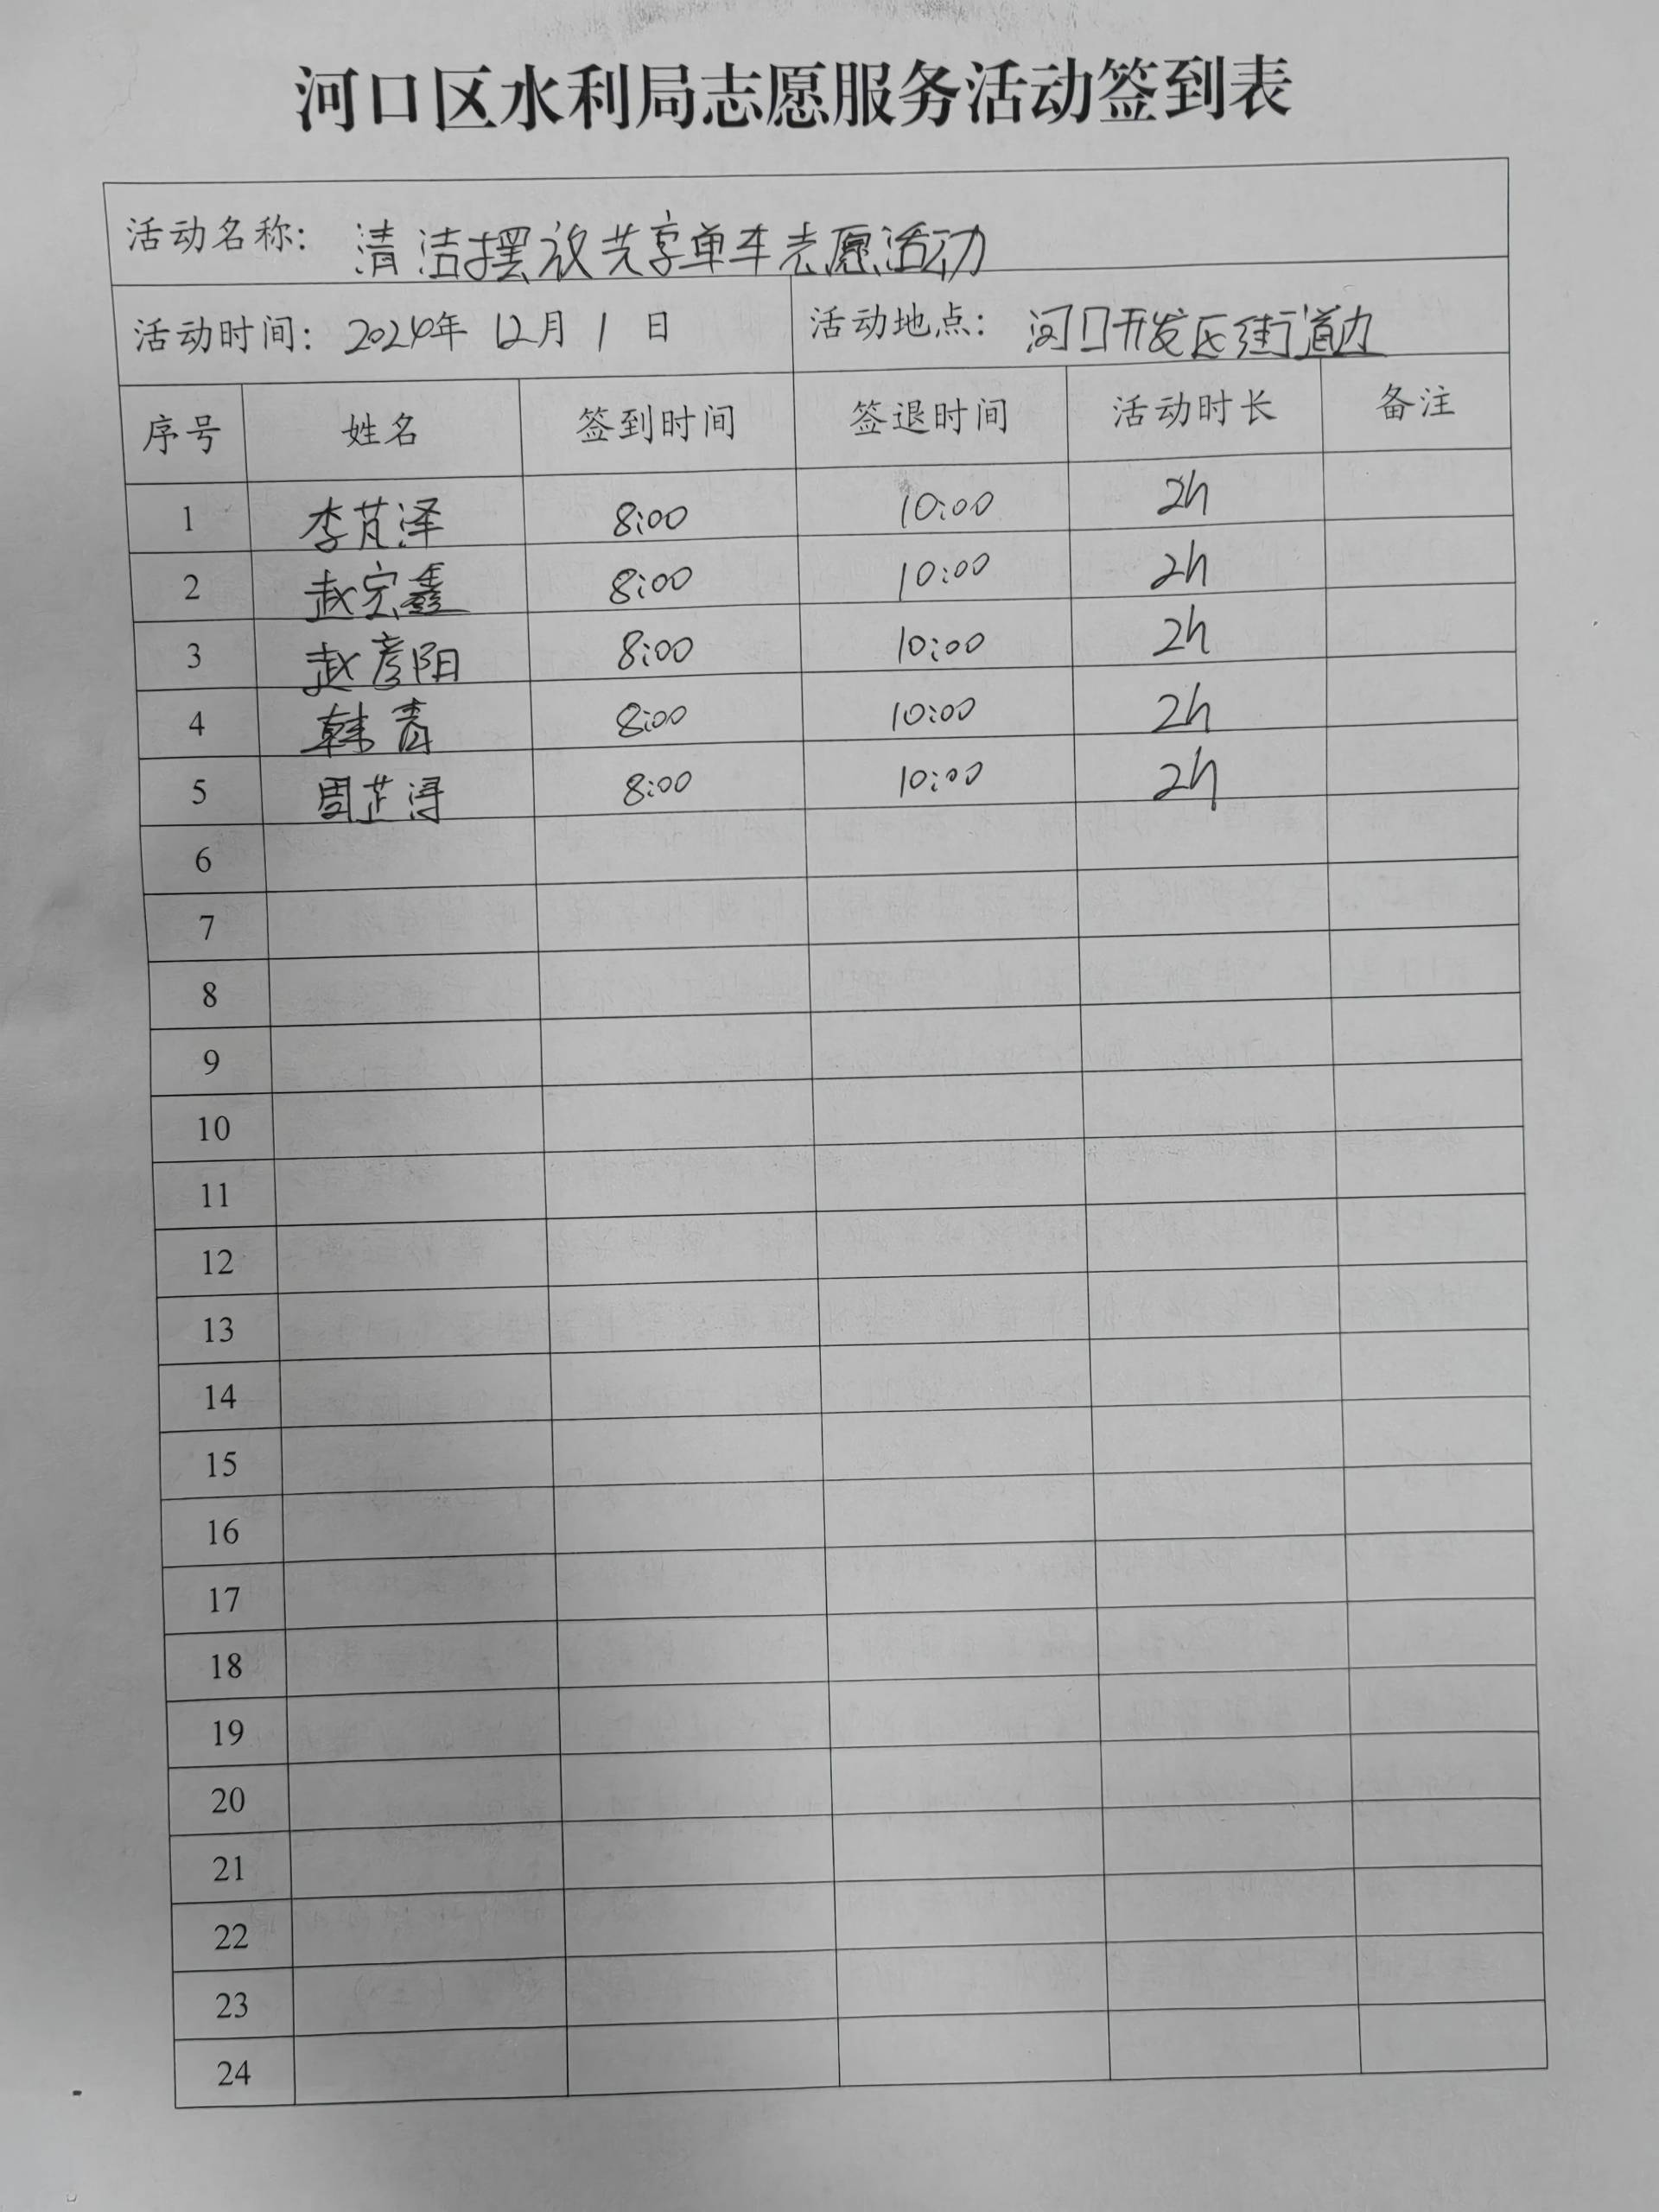 河口区水利局志愿服务活动签到表
活动名称: 清洁摆放共享单车志愿活动
活动时间: 2024年 12月 1 日 活动地点: 河口开发区街道边
序号 姓名 签到时间 签退时间 活动时长 备注
1 李芃泽 8:00 10:00 2h
2 赵完鑫 8:00 10:00 2h
3 赵彦阳 8:00 10:00 2h
4 韩青 8:00 10:00 2h
5 周芷浔 8:00 10:00 2h
6
7
8
9
10
11
12
13
14
15
16
17
18
19
20
21
22
23
24